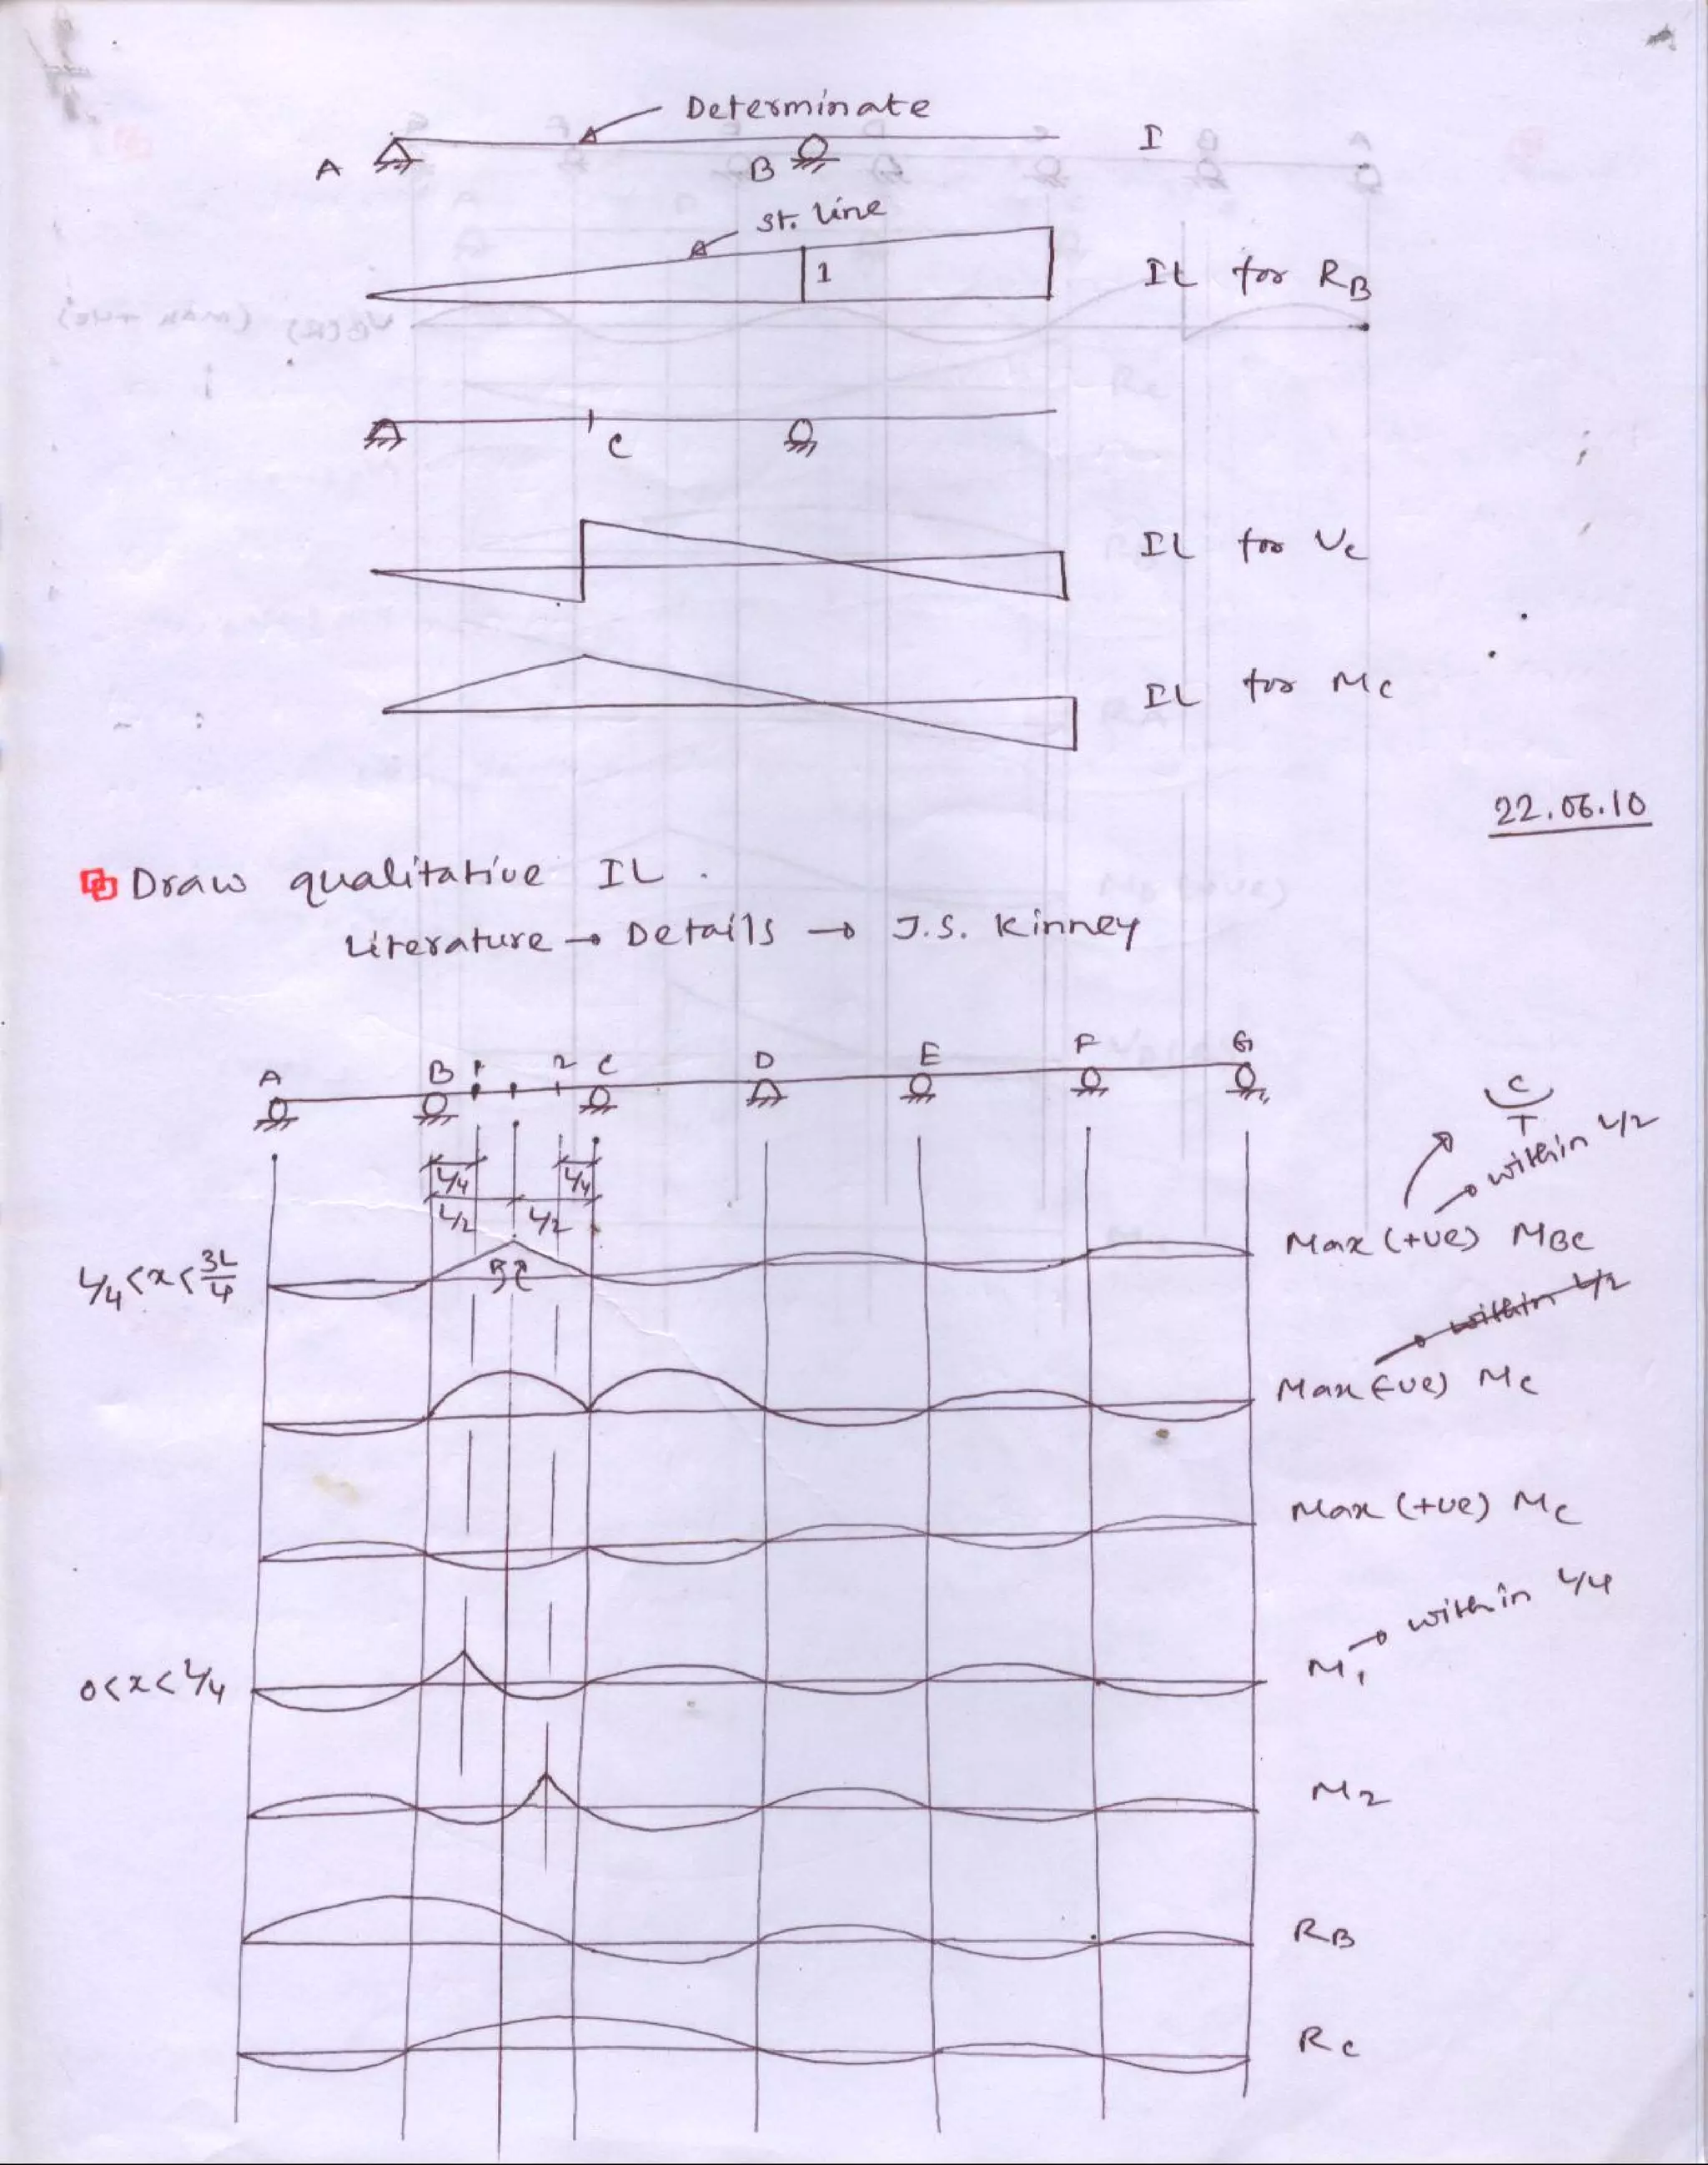 Determinate
I
A
B
st. line
1
IL for R_B
C
IL for V_c
IL for M_c
22.06.10
Draw qualitative IL.
Literature → Details → J.S. Kinney
A B 1 2 C D E F G
C
T
→ within L/2
L/4 L/4
L/2 L/2
Max (+ve) M_BC
L/4 < x < 3L/4
→ within L/2
Max (-ve) M_C
Max (+ve) M_C
→ within L/4
M_1
0 < x < L/4
M_2
R_B
R_C